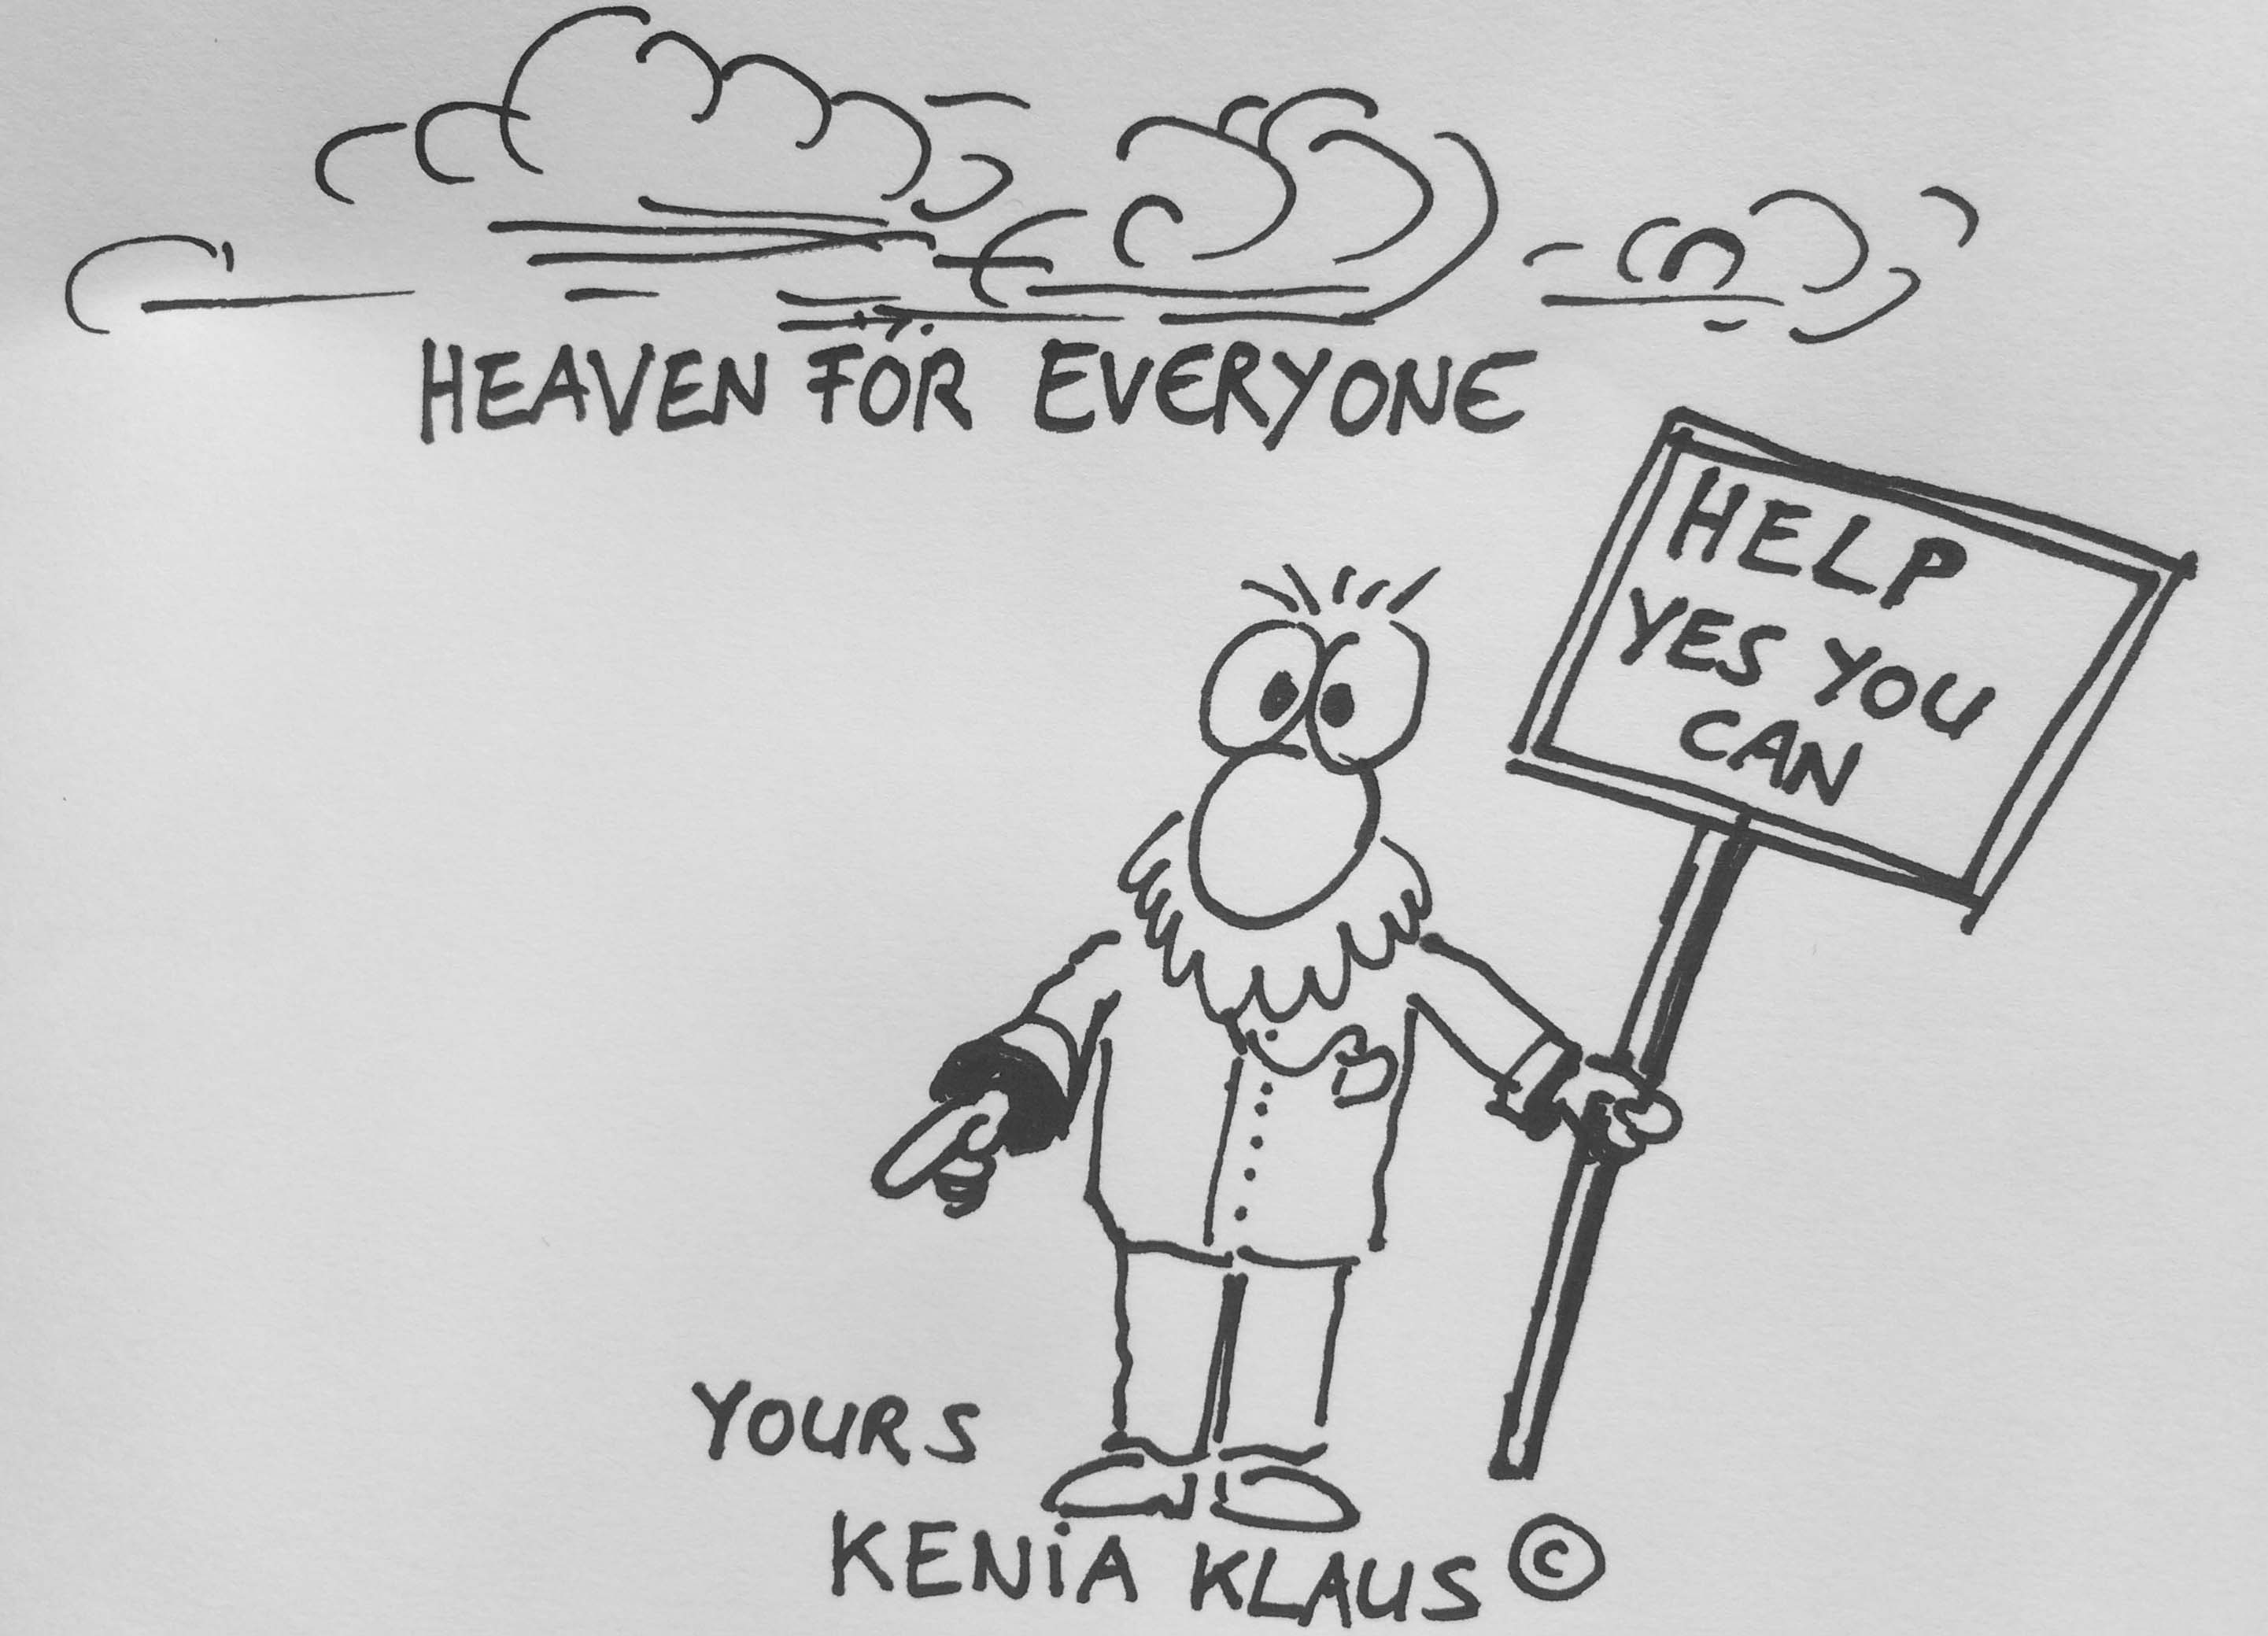 HEAVEN FOR EVERYONE
HELP
YES YOU
CAN
YOURS
KENiA KLAUS ©